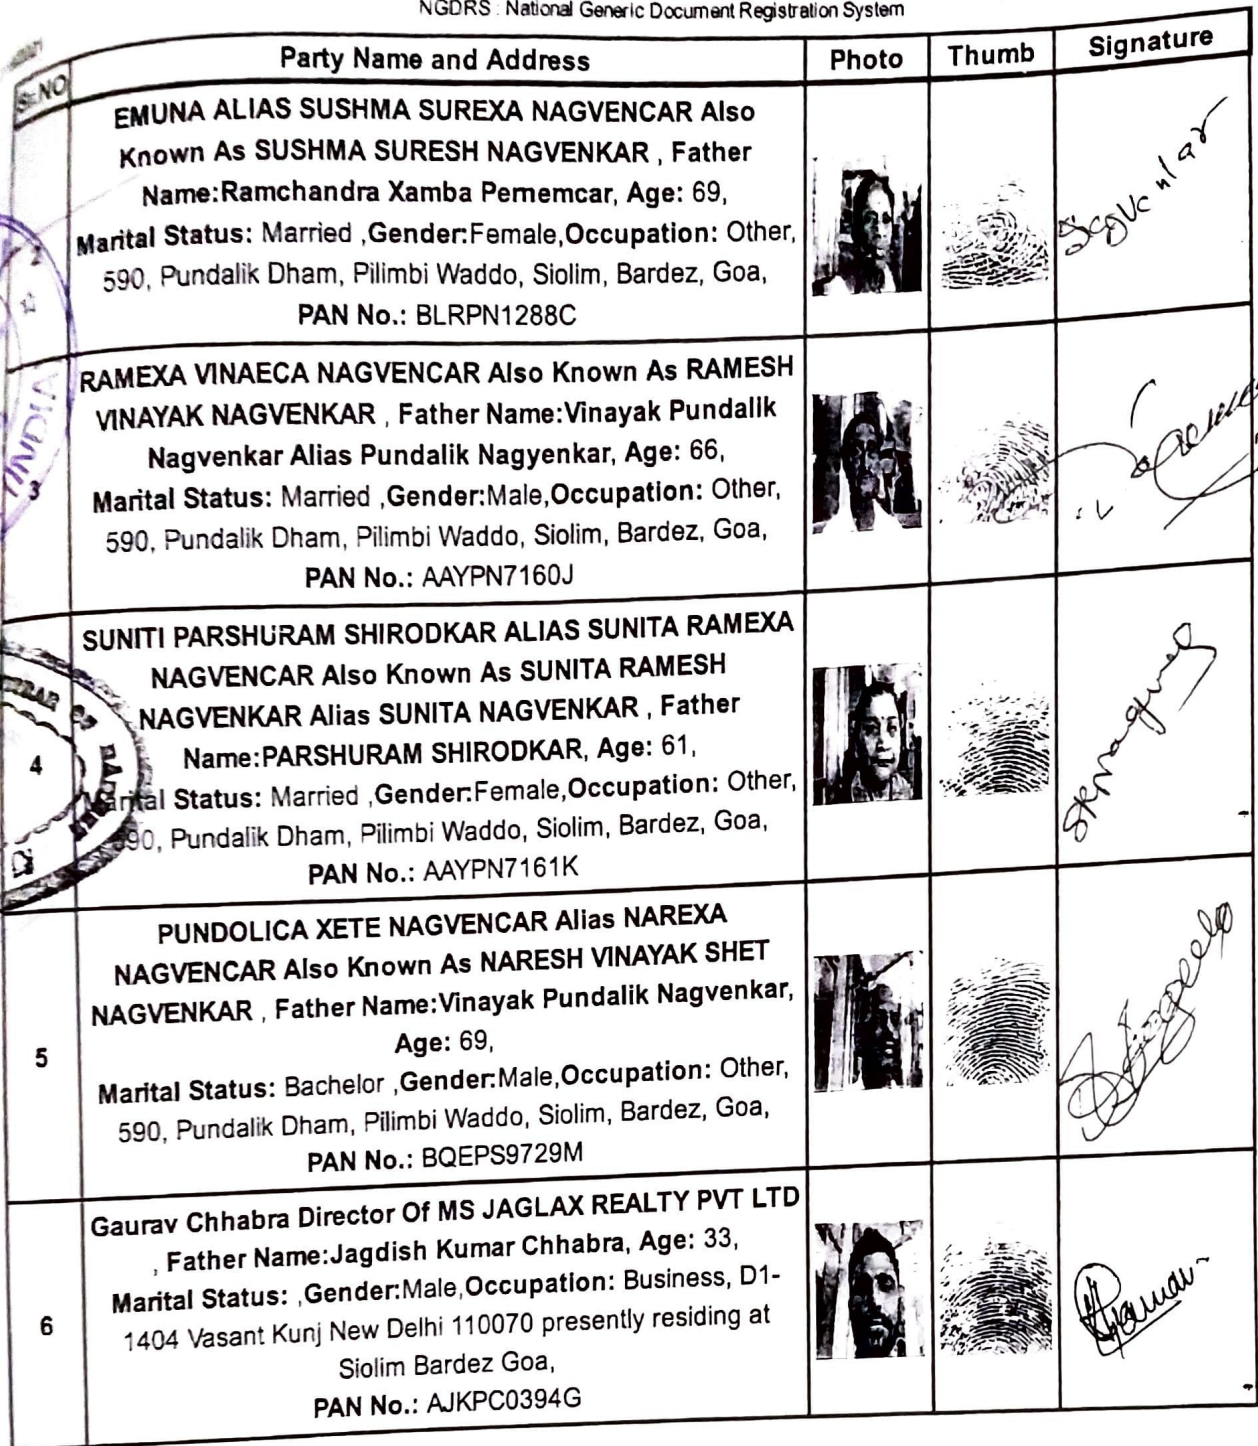 NGDRS : National Generic Document Registration System
Sr.NO Party Name and Address Photo Thumb Signature
2
EMUNA ALIAS SUSHMA SUREXA NAGVENCAR Also
Known As SUSHMA SURESH NAGVENKAR , Father
Name:Ramchandra Xamba Pernemcar, Age: 69,
Marital Status: Married ,Gender:Female,Occupation: Other,
590, Pundalik Dham, Pilimbi Waddo, Siolim, Bardez, Goa,
PAN No.: BLRPN1288C
3
INDIA
RAMEXA VINAECA NAGVENCAR Also Known As RAMESH
VINAYAK NAGVENKAR , Father Name:Vinayak Pundalik
Nagvenkar Alias Pundalik Nagyenkar, Age: 66,
Marital Status: Married ,Gender:Male,Occupation: Other,
590, Pundalik Dham, Pilimbi Waddo, Siolim, Bardez, Goa,
PAN No.: AAYPN7160J
4
SUNITI PARSHURAM SHIRODKAR ALIAS SUNITA RAMEXA
NAGVENCAR Also Known As SUNITA RAMESH
NAGVENKAR Alias SUNITA NAGVENKAR , Father
Name:PARSHURAM SHIRODKAR, Age: 61,
Marital Status: Married ,Gender:Female,Occupation: Other,
590, Pundalik Dham, Pilimbi Waddo, Siolim, Bardez, Goa,
PAN No.: AAYPN7161K
5
PUNDOLICA XETE NAGVENCAR Alias NAREXA
NAGVENCAR Also Known As NARESH VINAYAK SHET
NAGVENKAR , Father Name:Vinayak Pundalik Nagvenkar,
Age: 69,
Marital Status: Bachelor ,Gender:Male,Occupation: Other,
590, Pundalik Dham, Pilimbi Waddo, Siolim, Bardez, Goa,
PAN No.: BQEPS9729M
6
Gaurav Chhabra Director Of MS JAGLAX REALTY PVT LTD
, Father Name:Jagdish Kumar Chhabra, Age: 33,
Marital Status: ,Gender:Male,Occupation: Business, D1-
1404 Vasant Kunj New Delhi 110070 presently residing at
Siolim Bardez Goa,
PAN No.: AJKPC0394G